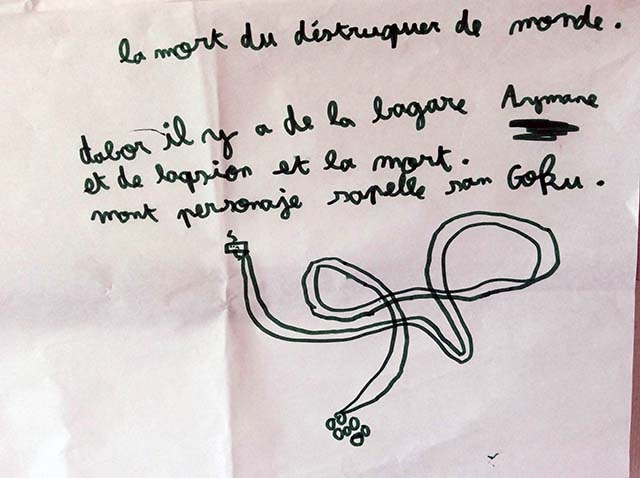 la mort du déstruquer de monde.
dabor il y a de la bagare Aymane
et de laqsion et la mort.
mont personaje sapelle san Goku.